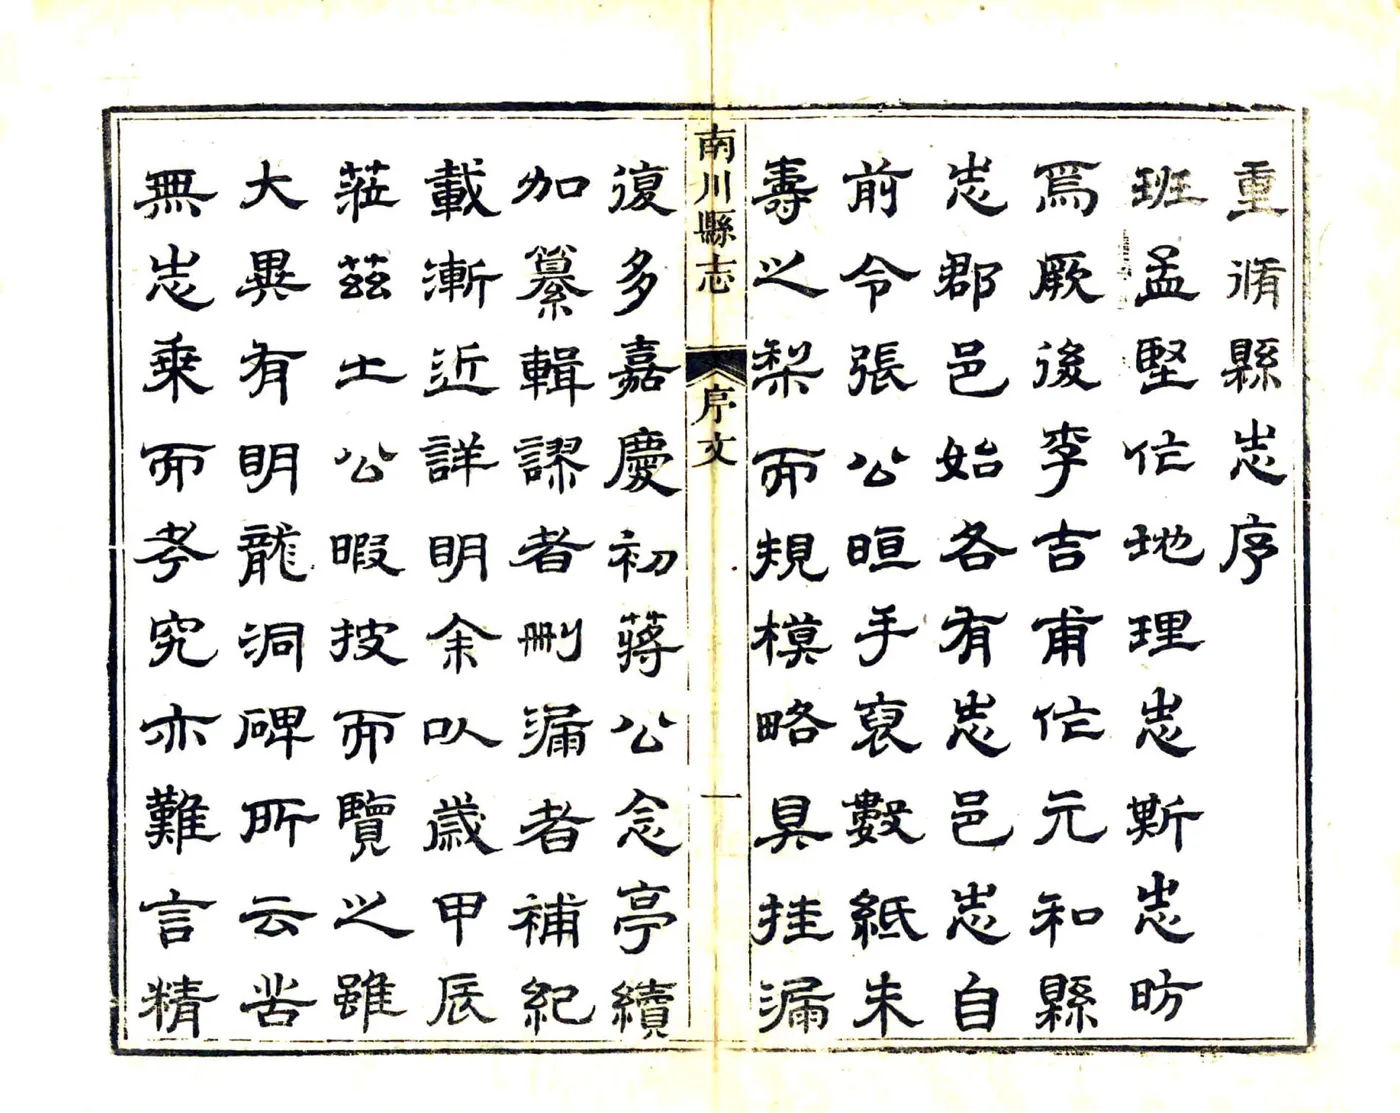 重脩縣志序
班孟堅作地理志斯志昉
焉厥後李吉甫作元和縣
志郡邑始各有志邑志自
前令張公晅手裒數紙未
壽之梨而規模略具挂漏
南川縣志 序文 一
復多嘉慶初蔣公念亭續
加纂輯謬者刪漏者補紀
載漸近詳明余以歲甲辰
蒞茲土公暇披而覽之雖
大異有明龍洞碑所云苦
無志乘而考究亦難言精